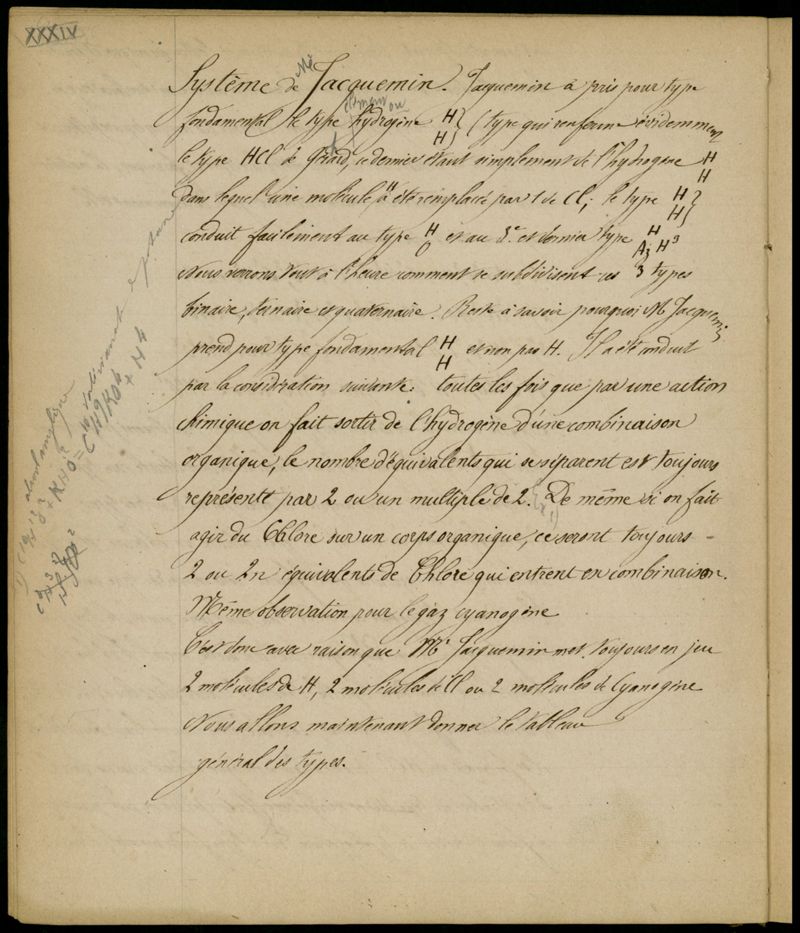 XXXIV
Système de Mr Jacquemin. Jacquemin a pris pour type
fondamental le type hydrogène H H } (type qui renferme évidemment
le type HCl de Girard, ce dernier étant simplement de l'hydrogène H H
dans lequel une molécule H a été remplacée par 1 de Cl; le type H H }
conduit facilement au type H O et au 3e et dernier type H Az H3
Nous verrons tout à l'heure comment se subdivisent ces 3 types
binaire, ternaire et quaternaire. Reste à savoir pourquoi Mr Jacquemin
prend pour type fondamental H H et non pas H. Il a été conduit
par la considération suivante: toutes les fois que par une action
chimique on fait sortir de l'hydrogène d'une combinaison
organique, le nombre d'équivalents qui se séparent est toujours
représenté par 2 ou un multiple de 2. De même si on fait
agir du Chlore sur un corps organique, ce seront toujours
2 ou 2n équivalents de Chlore qui entrent en combinaison.
Même observation pour le gaz cyanogène
C'est donc avec raison que Mr Jacquemin met toujours en jeu
2 molécules de H, 2 molécules de Cl ou 2 molécules de Cyanogène
Nous allons maintenant donner le tableau
général des types.